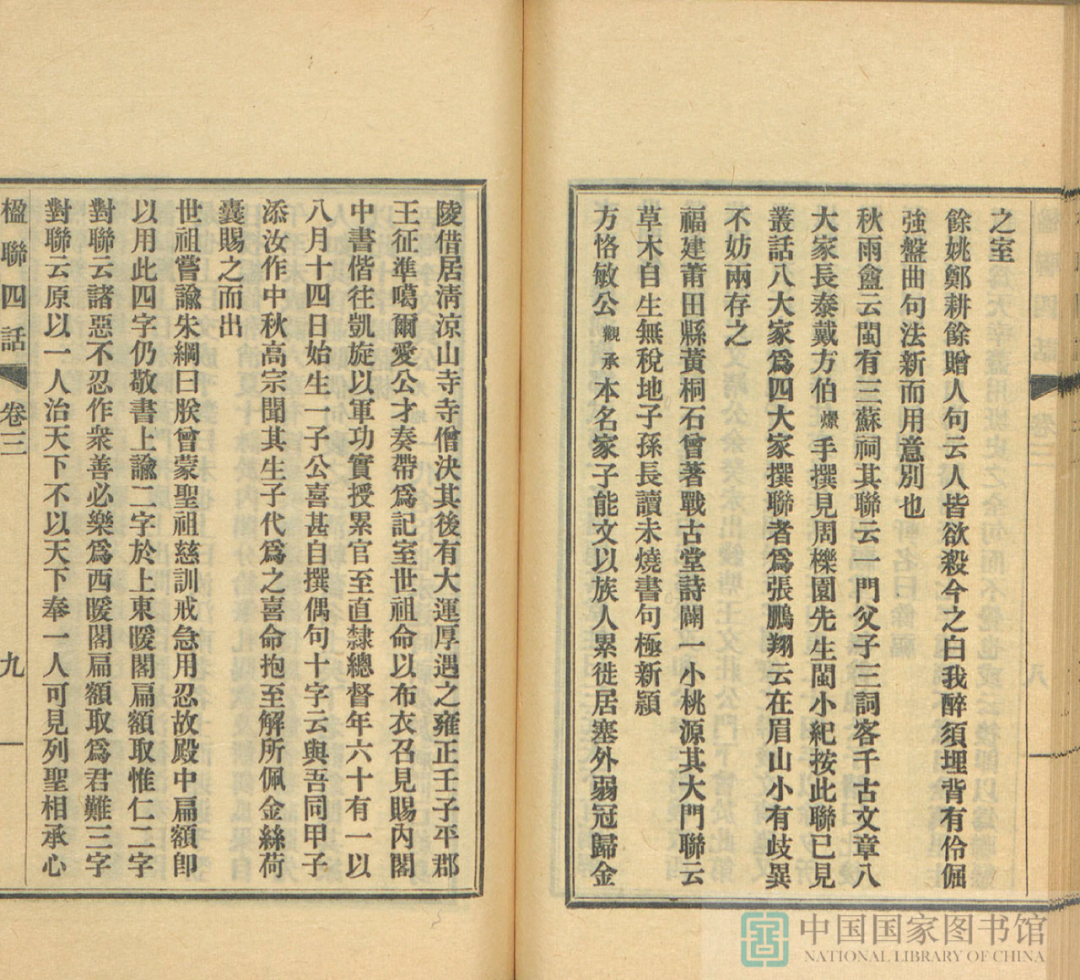 之室
餘姚鄭耕餘贈人句云人皆欲殺今之白我醉須埋背有伶倔
強盤曲句法新而用意別也
秋雨盦云閩有三蘇祠其聯云一門父子三詞客千古文章八
大家長泰戴方伯燝手撰見周櫟園先生閩小紀按此聯已見
叢話八大家爲四大家撰聯者爲張鵬翔云在眉山小有歧異
不妨兩存之
福建莆田縣黃桐石曾著戰古堂詩闢一小桃源其大門聯云
草木自生無稅地子孫長讀未燒書句極新穎
方恪敏公觀承本名家子能文以族人累徙居塞外弱冠歸金
陵借居清涼山寺寺僧決其後有大運厚遇之雍正壬子平郡
王征準噶爾愛公才奏帶爲記室世祖命以布衣召見賜內閣
中書偕往凱旋以軍功實授累官至直隸總督年六十有一以
八月十四日始生一子公喜甚自撰偶句十字云與吾同甲子
添汝作中秋高宗聞其生子代爲之喜命抱至解所佩金絲荷
囊賜之而出
世祖嘗諭朱綱曰朕曾蒙聖祖慈訓戒急用忍故殿中扁額卽
以用此四字仍敬書上諭二字於上東暖閣扁額取惟仁二字
對聯云諸惡不忍作衆善必樂爲西暖閣扁額取爲君難三字
對聯云原以一人治天下不以天下奉一人可見列聖相承心
楹聯四話 卷三 九
中国国家图书馆
NATIONAL LIBRARY OF CHINA